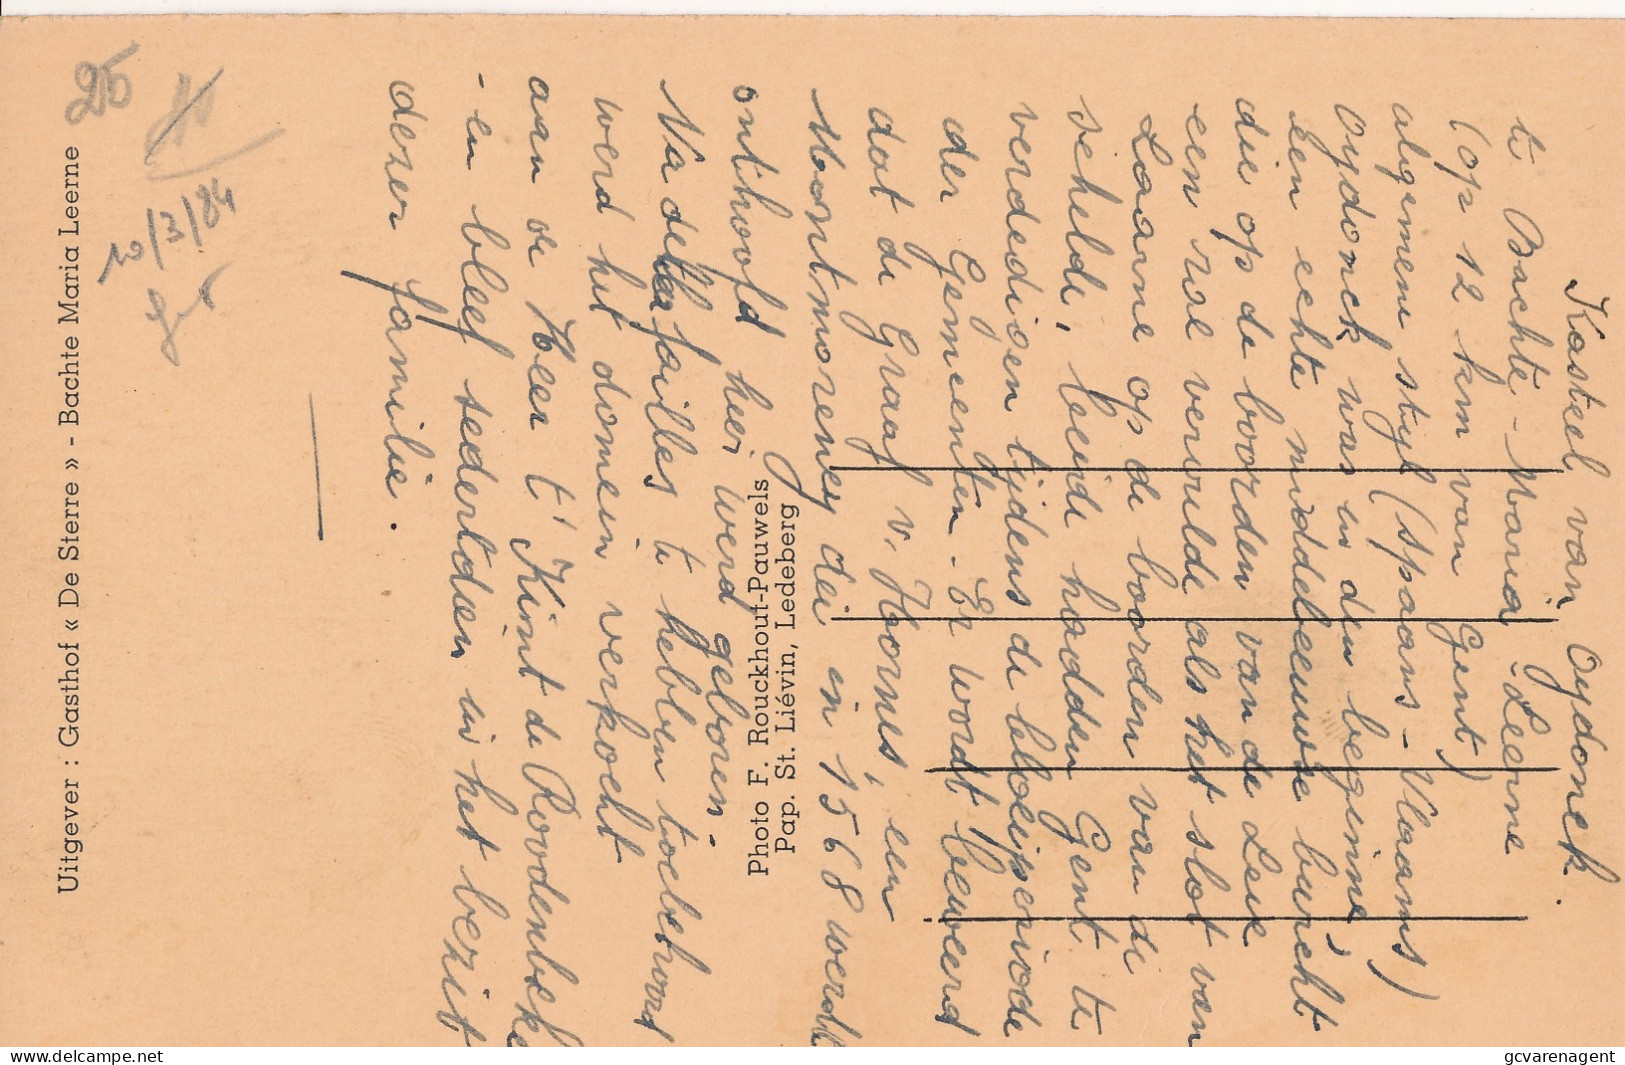 Kasteel van Oydonck.
te Bachte - Maria - Leerne
(op 12 km van Gent)
algemene styl (spaans - Vlaams)
Oydonck was in den beginne,
een echte middeleeuwse burcht
die op de boorden van de Leie
een rol vervulde als het slot van
Laarne op de boorden van de
schelde, beide hadden Gent te
verdedigen tijdens de bloeiperiode
der Gemeenten. Er wordt beweerd
dat de Graaf v. Hornes, een
Montmorency die in 1568 werdt
onthoofd hier werd geboren.
Na della failles te hebben toebehoord
werd het domein verkocht
aan de Heer t' Kint de Roodenbeke
- en bleef sedertdien in het bezit
dezer familie.
Photo F. Rouckhout-Pauwels
Pap. St. Liévin, Ledeberg
Uitgever : Gasthof « De Sterre » - Bachte Maria Leerne
26
20/3/84
website www.delcampe.net
gcvarenagent